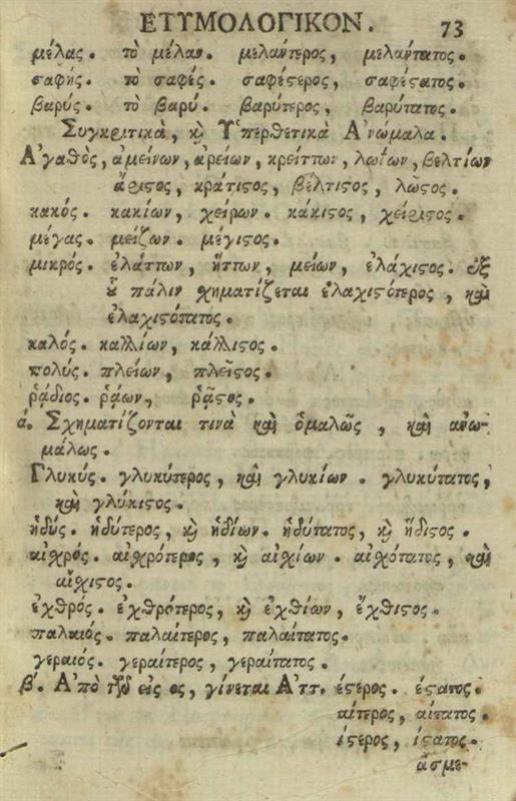 ΕΤΥΜΟΛΟΓΙΚΟΝ. 73
μέλας. τὸ μέλαν. μελαντερος, μελαντατος.
σαφὴς. τὸ σαφές. σαφέϛερος, σαφέϛατος.
βαρύς. τὸ βαρυ. βαρύτερος, βαρύτατος.
Συγκριτικὰ, ϗ Ὑπερθετικὰ Ἀνώμαλα.
Ἀγαθὸς, ἀμείνων, ἀρείων, κρείττων, λωΐων, βελτίων
ἄριϛος, κράτιϛος, βέλτιϛος, λωϛος.
κακός. κακίων, χείρων. κάκιϛος, χείριϛος.
μέγας. μείζων. μέγιϛος.
μικρός. ἐλάττων, ἥττων, μείων, ἐλάχιϛος. ἐξ
οὗ πάλιν χηματίζεται ἐλαχιϛότερος, καὶ
ἐλαχιϛότατος.
καλός. καλλίων, κάλλιϛος.
πολύς. πλείων, πλεῖϛος.
ῥᾴδιος. ῥᾴων, ῥᾷϛος.
ά. Σχηματίζονται τινὰ καὶ ὁμαλῶς, καὶ ἀνω-
μάλως.
Γλυκύς. γλυκύτερος, καὶ γλυκίων. γλυκύτατος,
καὶ γλύκιϛος.
ἡδύς. ἡδύτερος, ϗ ἡδίων. ἡδύτατος, ϗ ἥδιϛος.
αἰχρός. αἰχρότερος, ϗ αἰχίων. αἰχότατος, καὶ
αἴχιϛος.
ἐχθρός. ἐχθρότερος, ϗ ἐχθίων, ἔχθιϛος.
παλαιός. παλαίτερος, παλαίτατος.
γεραιός. γεραίτερος, γεραίτατος.
β. Ἀπὸ τῶν εἰς ος, γίνεται Ἀττ. έϛερος. έϛατος.
αίτερος, αίτατος.
ίϛερος, ίϛατος.
ἄσμε-